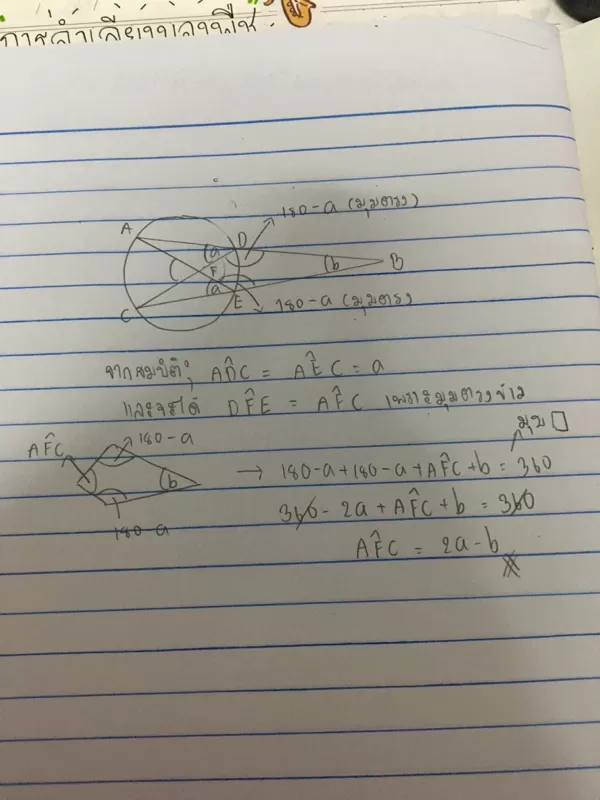 การลำเลียงของพืช
180-a (มุมตรง)
A
D
a
F
b
B
a
E
C
180-a (มุมตรง
จากสมบัติ; AD̂C = AÊC = a
และจะได้ DF̂E = AF̂C เพราะมุมตรงข้าม
มุม □
AF̂C
180-a
b
180-a
→ 180-a+180-a+AF̂C+b = 360
360 - 2a + AF̂C + b = 360
AF̂C = 2a-b